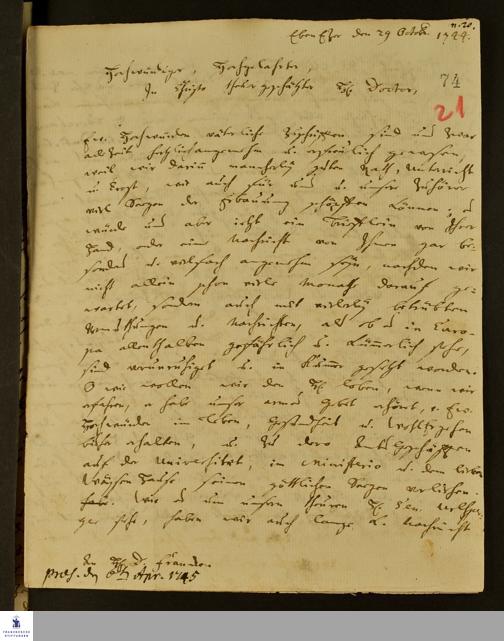 n. 20.
EbenEzer den 29 Octobr. 1744.
Hochwürdiger, Hochgelahrter,
In Christo theuer geschätzter H. Doctor,
74
21
Ew. Hochwürden väterliche Zuschriften sind uns zwar
allezeit herzlich angenehm u. erfreulich gewesen,
weil wir darin mancherley guten Rath, Unterricht
u. Trost, wie auch für uns u. unsere Zuhörer
viel Segen der Erbauung schöpffen können; es
würde uns aber jetzt ein Brieflein von Ihrer
Hand, oder eine Nachricht von Ihnen gar be-
sonders u. vielfach angenehm seyn, nachdem wir
nicht allein schon viele Monath darauf ge-
wartet, sondern auch mit vielerley betrübten
Vermuthungen u. Nachrichten, als ob es in Euro-
pa allenthalben gefährlich u. kümmerlich stehe,
sind verunruhiget u. in Kummer gesetzt worden.
O wie wollen wir den H. loben, wenn wir
erfahren, er habe unser armes Gebet erhört, u. Ew.
Hochwürden im Leben, Gesundheit u.
erhalten, u. zu dero Amts Geschäfften
auf der Universitaet, im Ministerio u. dem lieben
Waysen Hause seinen göttlichen Segen verliehen.
Wie es um unsern theuren H. Sen. Urlsper-
ger stehe, haben wir auch lange k. Nachricht
An H. D. Francken.
præs. den Apr. 1745
FRANCKESCHE
STIFTUNGEN